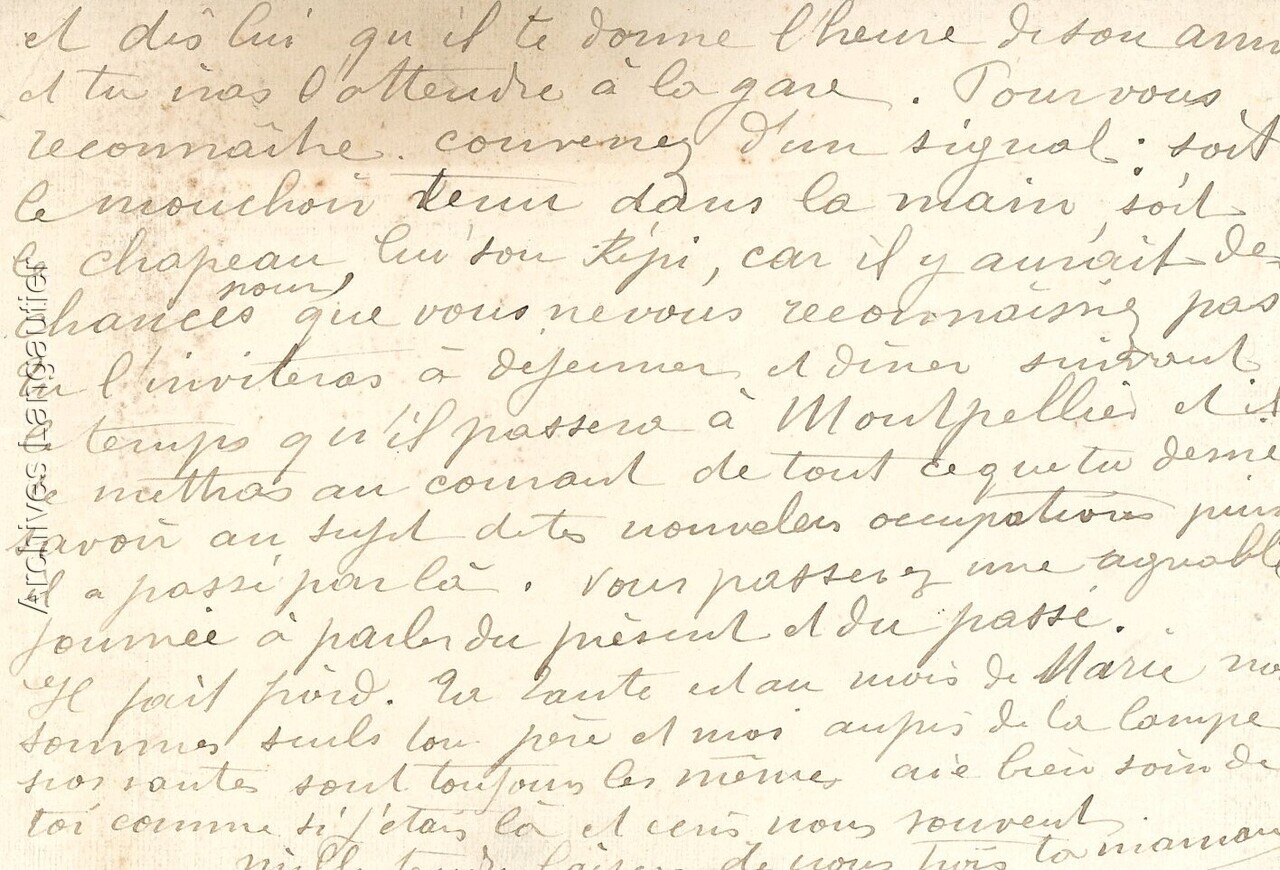 et dis lui qu'il te donne l'heure de son arri
et tu iras l'attendre à la gare. Pour vous
reconnaître. convenez d'un signal : soit
le mouchoir tenu dans la main soit
le chapeau, lui son Képi, car il y aurait de
chances pour que vous ne vous reconnaissiez pas
tu l'inviteras à déjeuner et dîner suivant
le temps qu'il passera à Montpellier et il
te mettras au courant de tout ce que tu
savoir au sujet de tes nouvelles occupations puis
il a passé par là. Vous passerez une agréable
journée à parler du présent et du passé.
Il fait froid. Ta tante est au mois de Marie no
sommes seuls ton père et moi auprès de la lampe
nos santés sont toujours les mêmes aie bien soin de
toi comme si j'étais là et écris nous souvent
Mille de nous trois ta maman
Archives Langautier